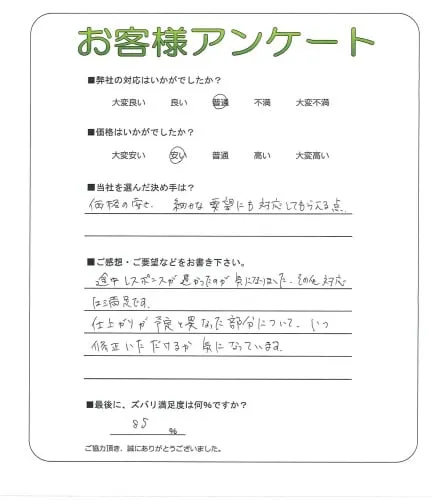 お客様アンケート
■弊社の対応はいかがでしたか？
大変良い 良い 普通 不満 大変不満
■価格はいかがでしたか？
大変安い 安い 普通 高い 大変高い
■当社を選んだ決め手は？
価格の安さ、細かな要望にも対応してもらえる点、
■ご感想・ご要望などをお書き下さい。
途中レスポンスが遅かったのが気になりました。その他対応
は満足です。
仕上がりが予定と異なった部分について、いつ
修正いただけるか気になっています。
■最後に、ズバリ満足度は何%ですか？
85 %
ご協力頂き、誠にありがとうございました。